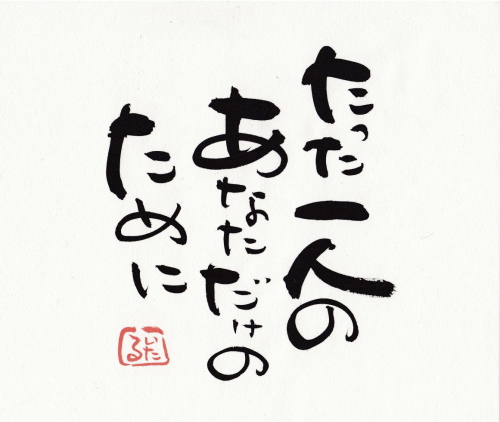 たった一人の
あなただけの
ために
いたる